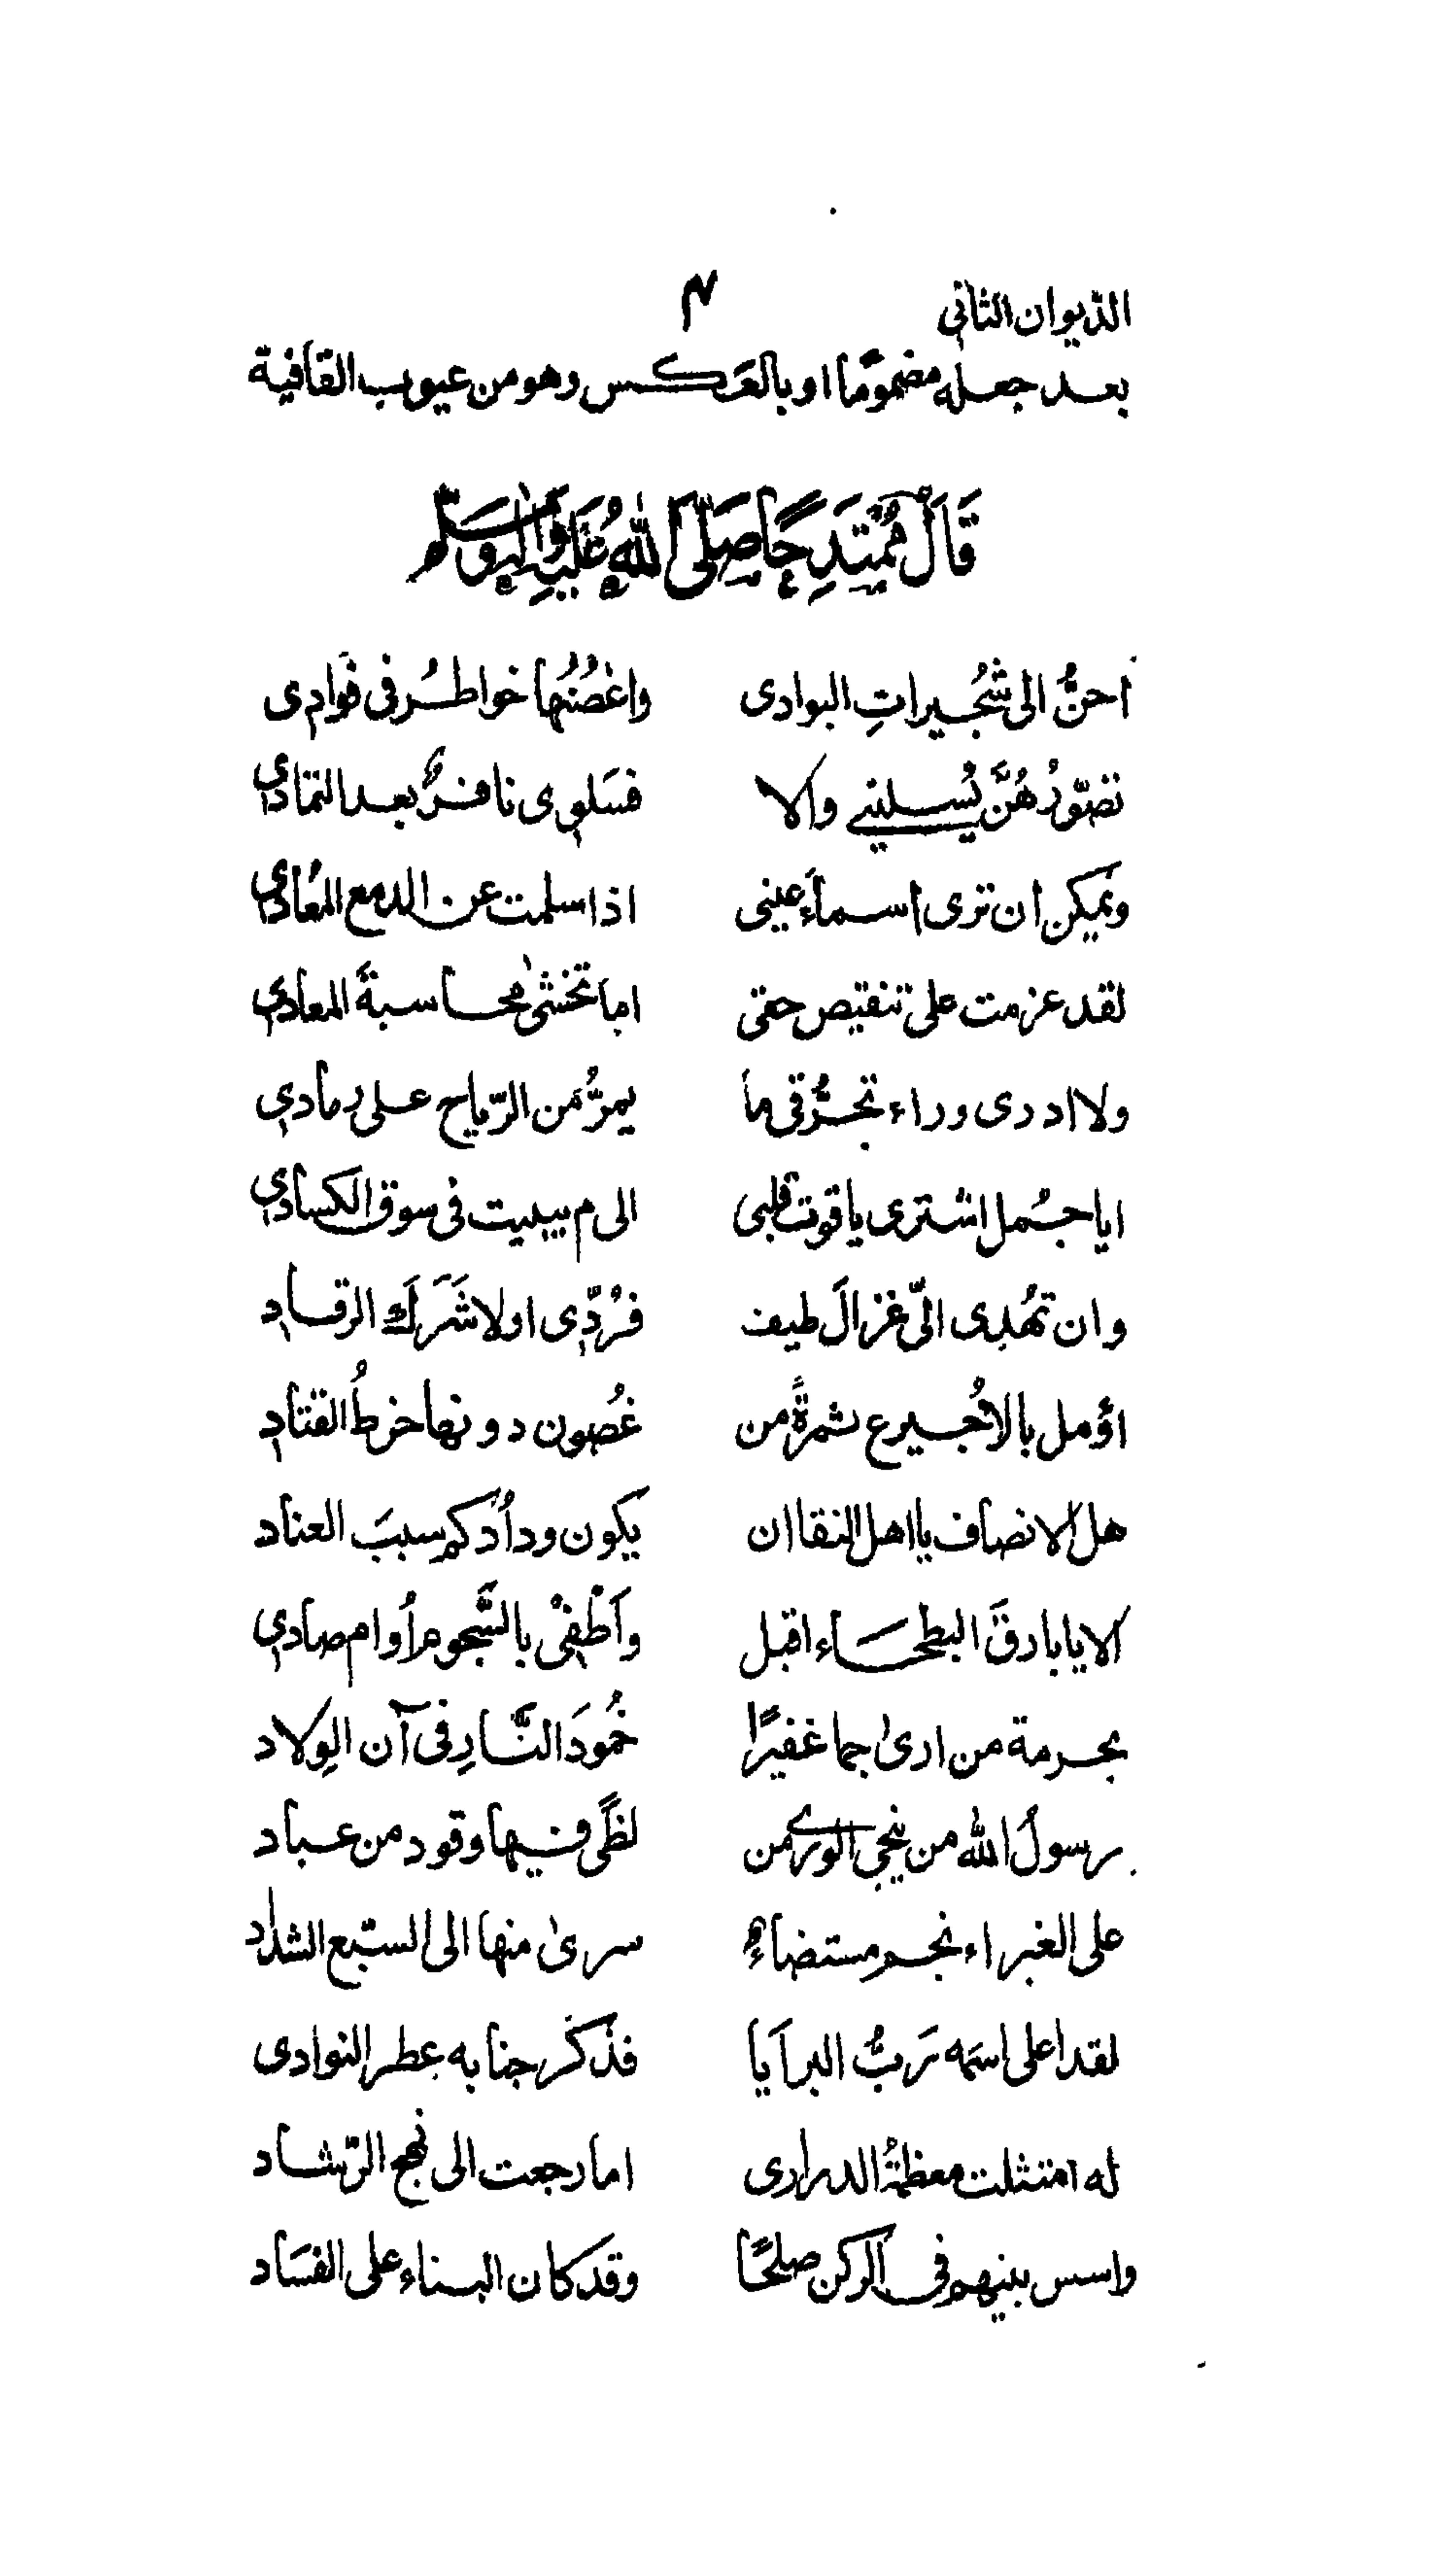 الديوان الثانی ۴
بعد جعله مضمومًا او بالعَكس وهو من عيوب القافية
قَالَ مُمْتَدِحًا صَلَّى اللهُ عَلَيْهِ وَاٰلِهٖ وَسَلَّم
احنُّ الى شُجُيراتِ البوادى واغصُنُها خواطرُ فى فؤادى
تصوّرُهُنَّ يُسلينى والا فسَلوى نافرٌ بعد التمادى
ويمكن ان ترى اسماءَ عينى اذا سلمت عن الدمع المُعادى
لقد عزمت على تنقيص حقى اما تخشىٰ محاسبةَ المعادى
ولا ادرى وراء تحرُّقى ما يمرُّ من الرّياح على رمادى
ايا جُمل اشترى ياقوت قلبى الى م يبيت فى سوق الكسادى
وان تُهدِى الىّ غزالَ طيف فرُدّى اولا شَرَكَ الرقاد
اؤمل بالاُجيرع ثمرةً من غُصون دونها خرطُ القتاد
هل الانصاف يا اهل النقا ان يكون ودادُكم سببَ العناد
الا يا بارقَ البطحَاء اقبل واَطْفِئْ بالسَّجوم اُوام صادى
بحرمة من ارىٰ جما غفيرًا خُمودَ النَّارِ فى آن الوِلاد
رسولُ الله من ينجى الورى من لظًى فيها وقود من عباد
على الغبراء نجم مستضاءٌ سرىٰ منها الى السّبع الشداد
لقد اعلى اسمَه رَبُّ البرَايا فذكر جنابه عطر النوادى
له امتثلت معظمةُ الدرارى اما رجعت الى نهج الرّشاد
واسس بينهم فى الركن صلحًا وقد كان البناء على الفسَاد